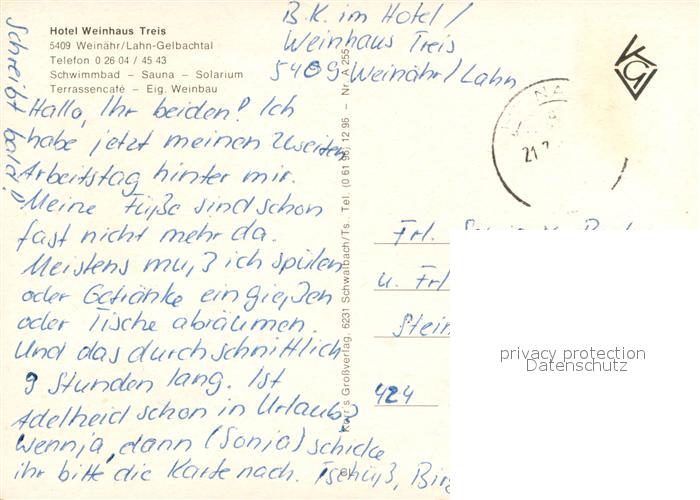 Hotel Weinhaus Treis
5409 Weinähr/Lahn-Gelbachtal
Telefon 0 26 04 / 45 43
Schwimmbad – Sauna – Solarium
Terrassencafé – Eig. Weinbau
B.K. im Hotel /
Weinhaus Treis
5409 Weinähr/Lahn
Hallo, Ihr beiden! Ich
habe jetzt meinen zweiten
Arbeitstag hinter mir.
Meine Füße sind schon
fast nicht mehr da.
Meistens muß ich spülen
oder Getränke eingießen
oder Tische abräumen.
Und das durchschnittlich
9 Stunden lang. Ist
Adelheid schon in Urlaub?
Wenn ja, dann (Sonja) schicke
ihr bitte die Karte nach. Tschüß, Birg
Schreibt bald!
Korr's Großverlag, 6231 Schwalbach/Ts., Tel. (0 61 96) 12 96 – Nr. A 255
NA
21.7
KGV
Frl.
u. Frl
Stein
424
privacy protection
Datenschutz